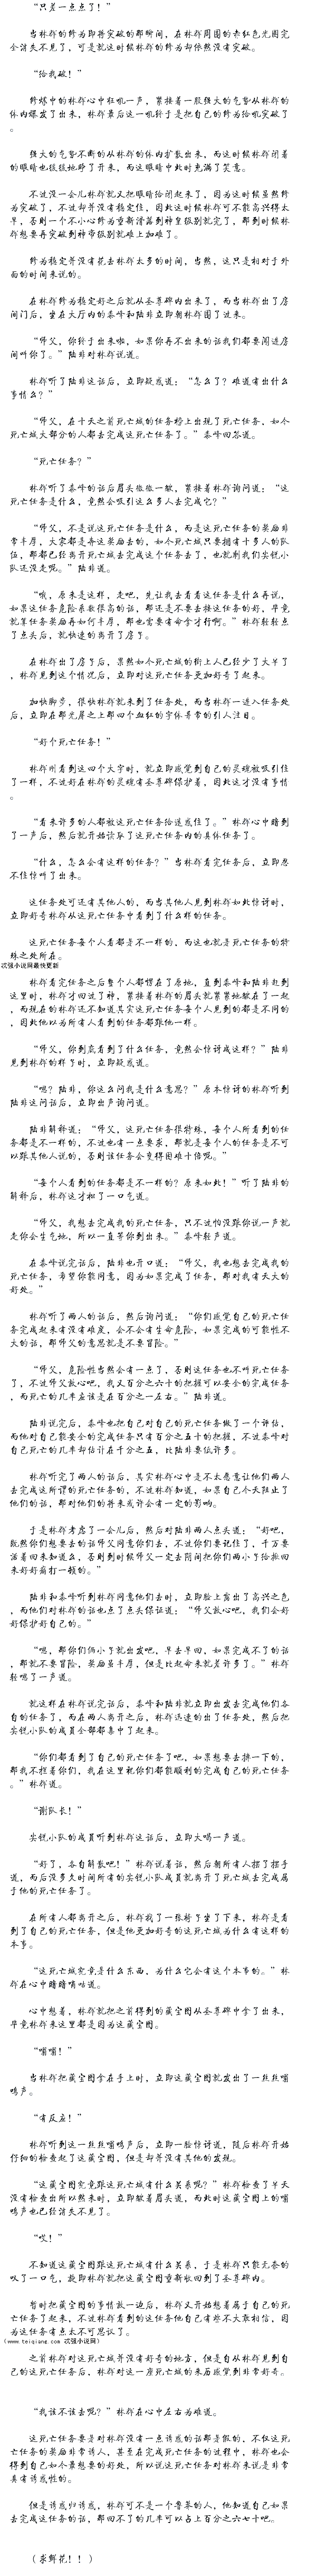 “只差一点点了！”
当林群的修为即将突破的那瞬间，在林群周围的赤红色光圈完
全消失不见了，可是就这时候林群的修为却依然没有突破。
“给我破！”
修炼中的林群心中狂吼一声，紧接着一股强大的气势从林群的
体内爆发了出来，林群最后这一吼终于是把自己的修为给吼突破了
。
强大的气势不断的从林群的体内扩散出来，而这时候林群闭着
的眼睛也缓缓地睁了开来，而这眼睛中此时充满了笑意。
不过没一会儿林群就又把眼睛给闭起来了，因为这时候虽然修
为突破了，不过却并没有稳定住，因此这时候林群可不能高兴得太
早，否则一个不小心修为重新滑落到神皇级别就完了，那到时候林
群想要再突破到神帝级别就难上加难了。
修为稳定并没有花去林群太多的时间，当然，这只是相对于外
面的时间来说的。
在林群修为稳定好之后就从圣尊碑内出来了，而当林群出了房
间门后，坐在大厅内的秦峰和陆非立即朝林群围了过来。
“师父，你终于出来啦，如果你再不出来的话我们都要闯进房
间叫你了。”陆非对林群说道。
林群听了陆非这话后，立即疑惑道：“怎么了？难道有出什么
事情么？”
“师父，在十天之前死亡城的任务榜上出现了死亡任务，如今
死亡城大部分的人都去完成这死亡任务了。”秦峰回答道。
“死亡任务？”
林群听了秦峰的话后眉头微微一皱，紧接着林群询问道：“这
死亡任务是什么，竟然会吸引这么多人去完成它？”
“师父，不是说这死亡任务是什么，而是这死亡任务的奖励非
常丰厚，大家都是奔这奖励去的，如今死亡城只要拥有十多人的队
伍，那都已经离开死亡城去完成这个任务去了，也就剩我们尖锐小
队还没走呢。”陆非道。
“哦，原来是这样，走吧，先让我去看看这任务是什么再说，
如果这任务危险系数很高的话，那还是不要去接这任务的好，毕竟
就算任务奖励再如何丰厚，那也需要有命拿才行啊。”林群轻轻点
了点头后，就快速的离开了房子。
在林群出了房子后，果然如今死亡城的街上人已经少了大半了
，林群见到这个情况后，立即对这死亡任务更加好奇了起来。
加快脚步，很快林群就来到了任务处，而当林群一进入任务处
后，立即在那光屏之上那四个血红的字体异常的引人注目。
“好个死亡任务！”
林群刚看到这四个大字时，就立即感觉到自己的灵魂被吸引住
了一样，不过好在林群的灵魂有圣尊碑保护着，因此这才没有事情
。
“看来许多的人都被这死亡任务给迷惑住了。”林群心中暗到
了一声后，然后就开始读取了这死亡任务内的具体任务了。
“什么，怎么会有这样的任务？”当林群看完任务后，立即忍
不住惊呼了出来。
这任务处可还有其他人的，而当其他人见到林群如此惊讶时，
立即好奇林群从这死亡任务中看到了什么样的任务。
这死亡任务每个人看都是不一样的，而这也就是死亡任务的特
殊之处所在。
忒强小说网最快更新
林群看完任务之后整个人都愣在了原地，直到秦峰和陆非赶到
这里时，林群才回过了神，紧接着林群的眉头就紧紧地皱在了一起
，而现在的林群还不知道其实这死亡任务每个人见到的都是不同的
，因此他以为所有人看到的任务都跟他一样。
“师父，你到底看到了什么任务，竟然会惊讶成这样？”陆非
见到林群的样子时，立即疑惑道。
“嗯？陆非，你这么问我是什么意思？”原本惊讶的林群听到
陆非这问话后，立即出声询问道。
陆非解释道：“师父，这死亡任务很特殊，每个人所看到的任
务都是不一样的，不过也有一点要求，那就是每个人的任务是不可
以跟其他人说的，否则该任务会变得困难十倍呢。”
“每个人看到的任务都是不一样的？原来如此！”听了陆非的
解释后，林群这才松了一口气道。
“师父，我想去完成我的死亡任务，只不过怕没跟你说一声就
走你会生气地，所以一直等你到出来。”秦峰轻声道。
在秦峰说完话后，陆非也开口道：“师父，我也想去完成我的
死亡任务，希望你能同意，因为如果完成了任务，那对我有天大的
好处。”
林群听了两人的话后，然后询问道：“你们感觉自己的死亡任
务完成起来有没有难度，会不会有生命危险，如果完成的可能性不
大的话，那师父的意思就是不要冒险。”
“师父，危险性当然会有一点了，否则这任务也不叫死亡任务
了，不过师父放心吧，我又百分之六十的把握可以安全的完成任务
，而死亡的几率应该是在百分之一左右。”陆非道。
陆非说完后，秦峰也把自己对自己的死亡任务做了一个评估，
而他对自己能安全的完成任务只有百分之五十的把握，不过秦峰对
自己死亡的几率却估计在千分之五，比陆非要低许多。
林群听完了两人的话后，其实林群心中是不太愿意让他们两人
去完成这所谓的死亡任务的，不过林群知道，如果自己今天阻止了
他们的话，那对他们的将来或许会有一定的影响。
于是林群考虑了一会儿后，然后对陆非两人点头道：“好吧，
既然你们想要去的话师父同意你们去，不过你们要记住了，千万要
活着回来知道么，否则到时候师父一定去阴间把你们两小子给揪回
来好好痛打一顿的。”
陆非和秦峰听到林群同意他们去时，立即脸上露出了高兴之色
，而他们对林群的话也点了点头保证道：“师父放心吧，我们会好
好保护好自己的。”
“嗯，那你们俩小子就出发吧，早去早回，如果完成不了的话
，那就不要冒险，奖励虽丰厚，但是比起命来就差许多了。”林群
轻嗯了一声道。
就这样在林群说完话后，秦峰和陆非就立即出发去完成他们各
自的任务了，而在两人离开之后，林群迅速的出了任务处，然后把
尖锐小队的成员全部都集中了起来。
“你们都看到了自己的死亡任务了吧，如果想要去拼一下的，
那我不拦着你们，我在这里祝你们都能顺利的完成自己的死亡任务
。”林群道。
“谢队长！”
尖锐小队的成员听到林群这话后，立即大喝一声道。
“好了，各自解散吧！”林群说着话，然后朝所有人摆了摆手
道，而后没多久时间所有的尖锐小队成员就离开了死亡城去完成属
于他的死亡任务了。
在所有人都离开之后，林群找了一张椅子坐了下来，林群是看
到了自己的死亡任务，但是他更加好奇的这死亡城为什么有这样的
本事。
“这死亡城究竟是什么东西，为什么它会有这个本事的。”林
群在心中暗暗嘀咕道。
心中想着，林群就把之前得到的藏宝图从圣尊碑中拿了出来，
毕竟林群来这里都是因为这藏宝图。
“嗡嗡！”
当林群把藏宝图拿在手上时，立即这藏宝图就发出了一丝丝嗡
鸣声。
“有反应！”
林群听到这一丝丝嗡鸣声后，立即一脸惊讶道，随后林群开始
仔细的检查起了这藏宝图，但是却并没有其他的发现。
“这藏宝图究竟跟这死亡城有什么关系呢？”林群检查了半天
没有检查出所以然来时，立即皱着眉头道，而此时这藏宝图上的嗡
鸣声也已经消失不见了。
“哎！”
不知道这藏宝图跟这死亡城有什么关系，于是林群只能无奈的
叹了一口气，旋即林群就把这藏宝图重新收回到了圣尊碑内。
暂时把藏宝图的事情放一边后，林群又开始想着属于自己的死
亡任务了起来，不过林群看到的这任务他自己有些不大敢相信，因
为这任务有点太不可思议了。
（www.teiqiang.com 忒强小说网）
之前林群对这死亡城并没有好奇的地方，但是自从林群见到自
己的这死亡任务后，林群对这一座死亡城的来历感觉到非常好奇。
“我该不该去呢？”林群在心中左右为难道。
这死亡任务要是对林群没有一点诱惑的话那是假的，不仅这死
亡任务的奖励非常诱人，甚至在完成死亡任务的过程中，林群也会
得到自己如今最想要的好处，所以说这死亡任务对林群来说是非常
具有诱惑性的。
但是诱惑归诱惑，林群可不是一个鲁莽的人，他知道自己如果
去完成这任务的话，那回不了的几率可以占上百分之六七十吧。
（求鲜花！！）